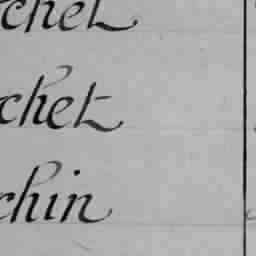 chet
chet
chin